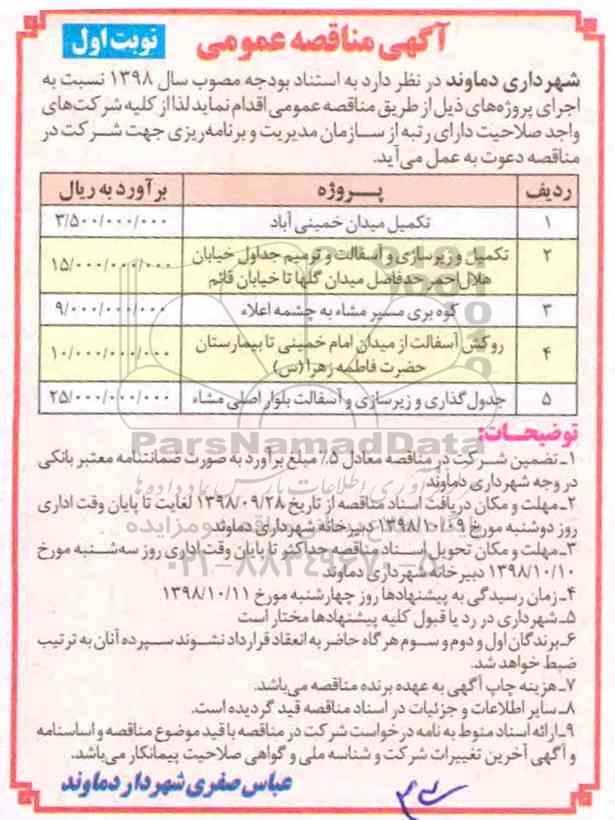 آگهی مناقصه عمومی
نوبت اول
شهرداری دماوند در نظر دارد به استناد بودجه مصوب سال ۱۳۹۸ نسبت به
اجرای پروژه‌های ذیل از طریق مناقصه عمومی اقدام نماید لذا از کلیه شرکت‌های
واجد صلاحیت دارای رتبه از سازمان مدیریت و برنامه‌ریزی جهت شرکت در
مناقصه دعوت به عمل می‌آید.
ردیف پـــروژه برآورد به ریال
۱ تکمیل میدان خمینی آباد ۳/۵۰۰/۰۰۰/۰۰۰
۲ تکمیل و زیرسازی و آسفالت و ترمیم جداول خیابان
هلال احمر حدفاصل میدان گلها تا خیابان قائم ۱۵/۰۰۰/۰۰۰/۰۰۰
۳ کوه بری مسیر مشاء به چشمه اعلاء ۹/۰۰۰/۰۰۰/۰۰۰
۴ روکش آسفالت از میدان امام خمینی تا بیمارستان
حضرت فاطمه زهرا (س) ۱۰/۰۰۰/۰۰۰/۰۰۰
۵ جدول گذاری و زیرسازی و آسفالت بلوار اصلی مشاء ۲۵/۰۰۰/۰۰۰/۰۰۰
توضیحـات:
ParsNamadData
۱ـ تضمین شرکت در مناقصه معادل ۵٪ مبلغ برآورد به صورت ضمانتنامه معتبر بانکی
در وجه شهرداری دماوند
۲ـ مهلت و مکان دریافت اسناد مناقصه از تاریخ ۱۳۹۸/۰۹/۲۸ لغایت تا پایان وقت اداری
روز دوشنبه مورخ ۱۳۹۸/۱۰/۰۹ دبیرخانه شهرداری دماوند
۳ـ مهلت و مکان تحویل اسناد مناقصه حداکثر تا پایان وقت اداری روز سه‌شنبه مورخ
۱۳۹۸/۱۰/۱۰ دبیرخانه شهرداری دماوند
۰۲۱-۸۸۳۴۹۶۷۰-۵
۴ـ زمان رسیدگی به پیشنهادها روز چهارشنبه مورخ ۱۳۹۸/۱۰/۱۱
۵ـ شهرداری در رد یا قبول کلیه پیشنهادها مختار است
۶ـ برندگان اول و دوم و سوم هرگاه حاضر به انعقاد قرارداد نشوند سپرده آنان به ترتیب
ضبط خواهد شد.
۷ـ هزینه چاپ آگهی به عهده برنده مناقصه می‌باشد.
۸ـ سایر اطلاعات و جزئیات در اسناد مناقصه قید گردیده است.
۹ـ ارائه اسناد منوط به نامه درخواست شرکت در مناقصه با قید موضوع مناقصه و اساسنامه
و آگهی آخرین تغییرات شرکت و شناسه ملی و گواهی صلاحیت پیمانکار می‌باشد.
عباس صفری شهردار دماوند